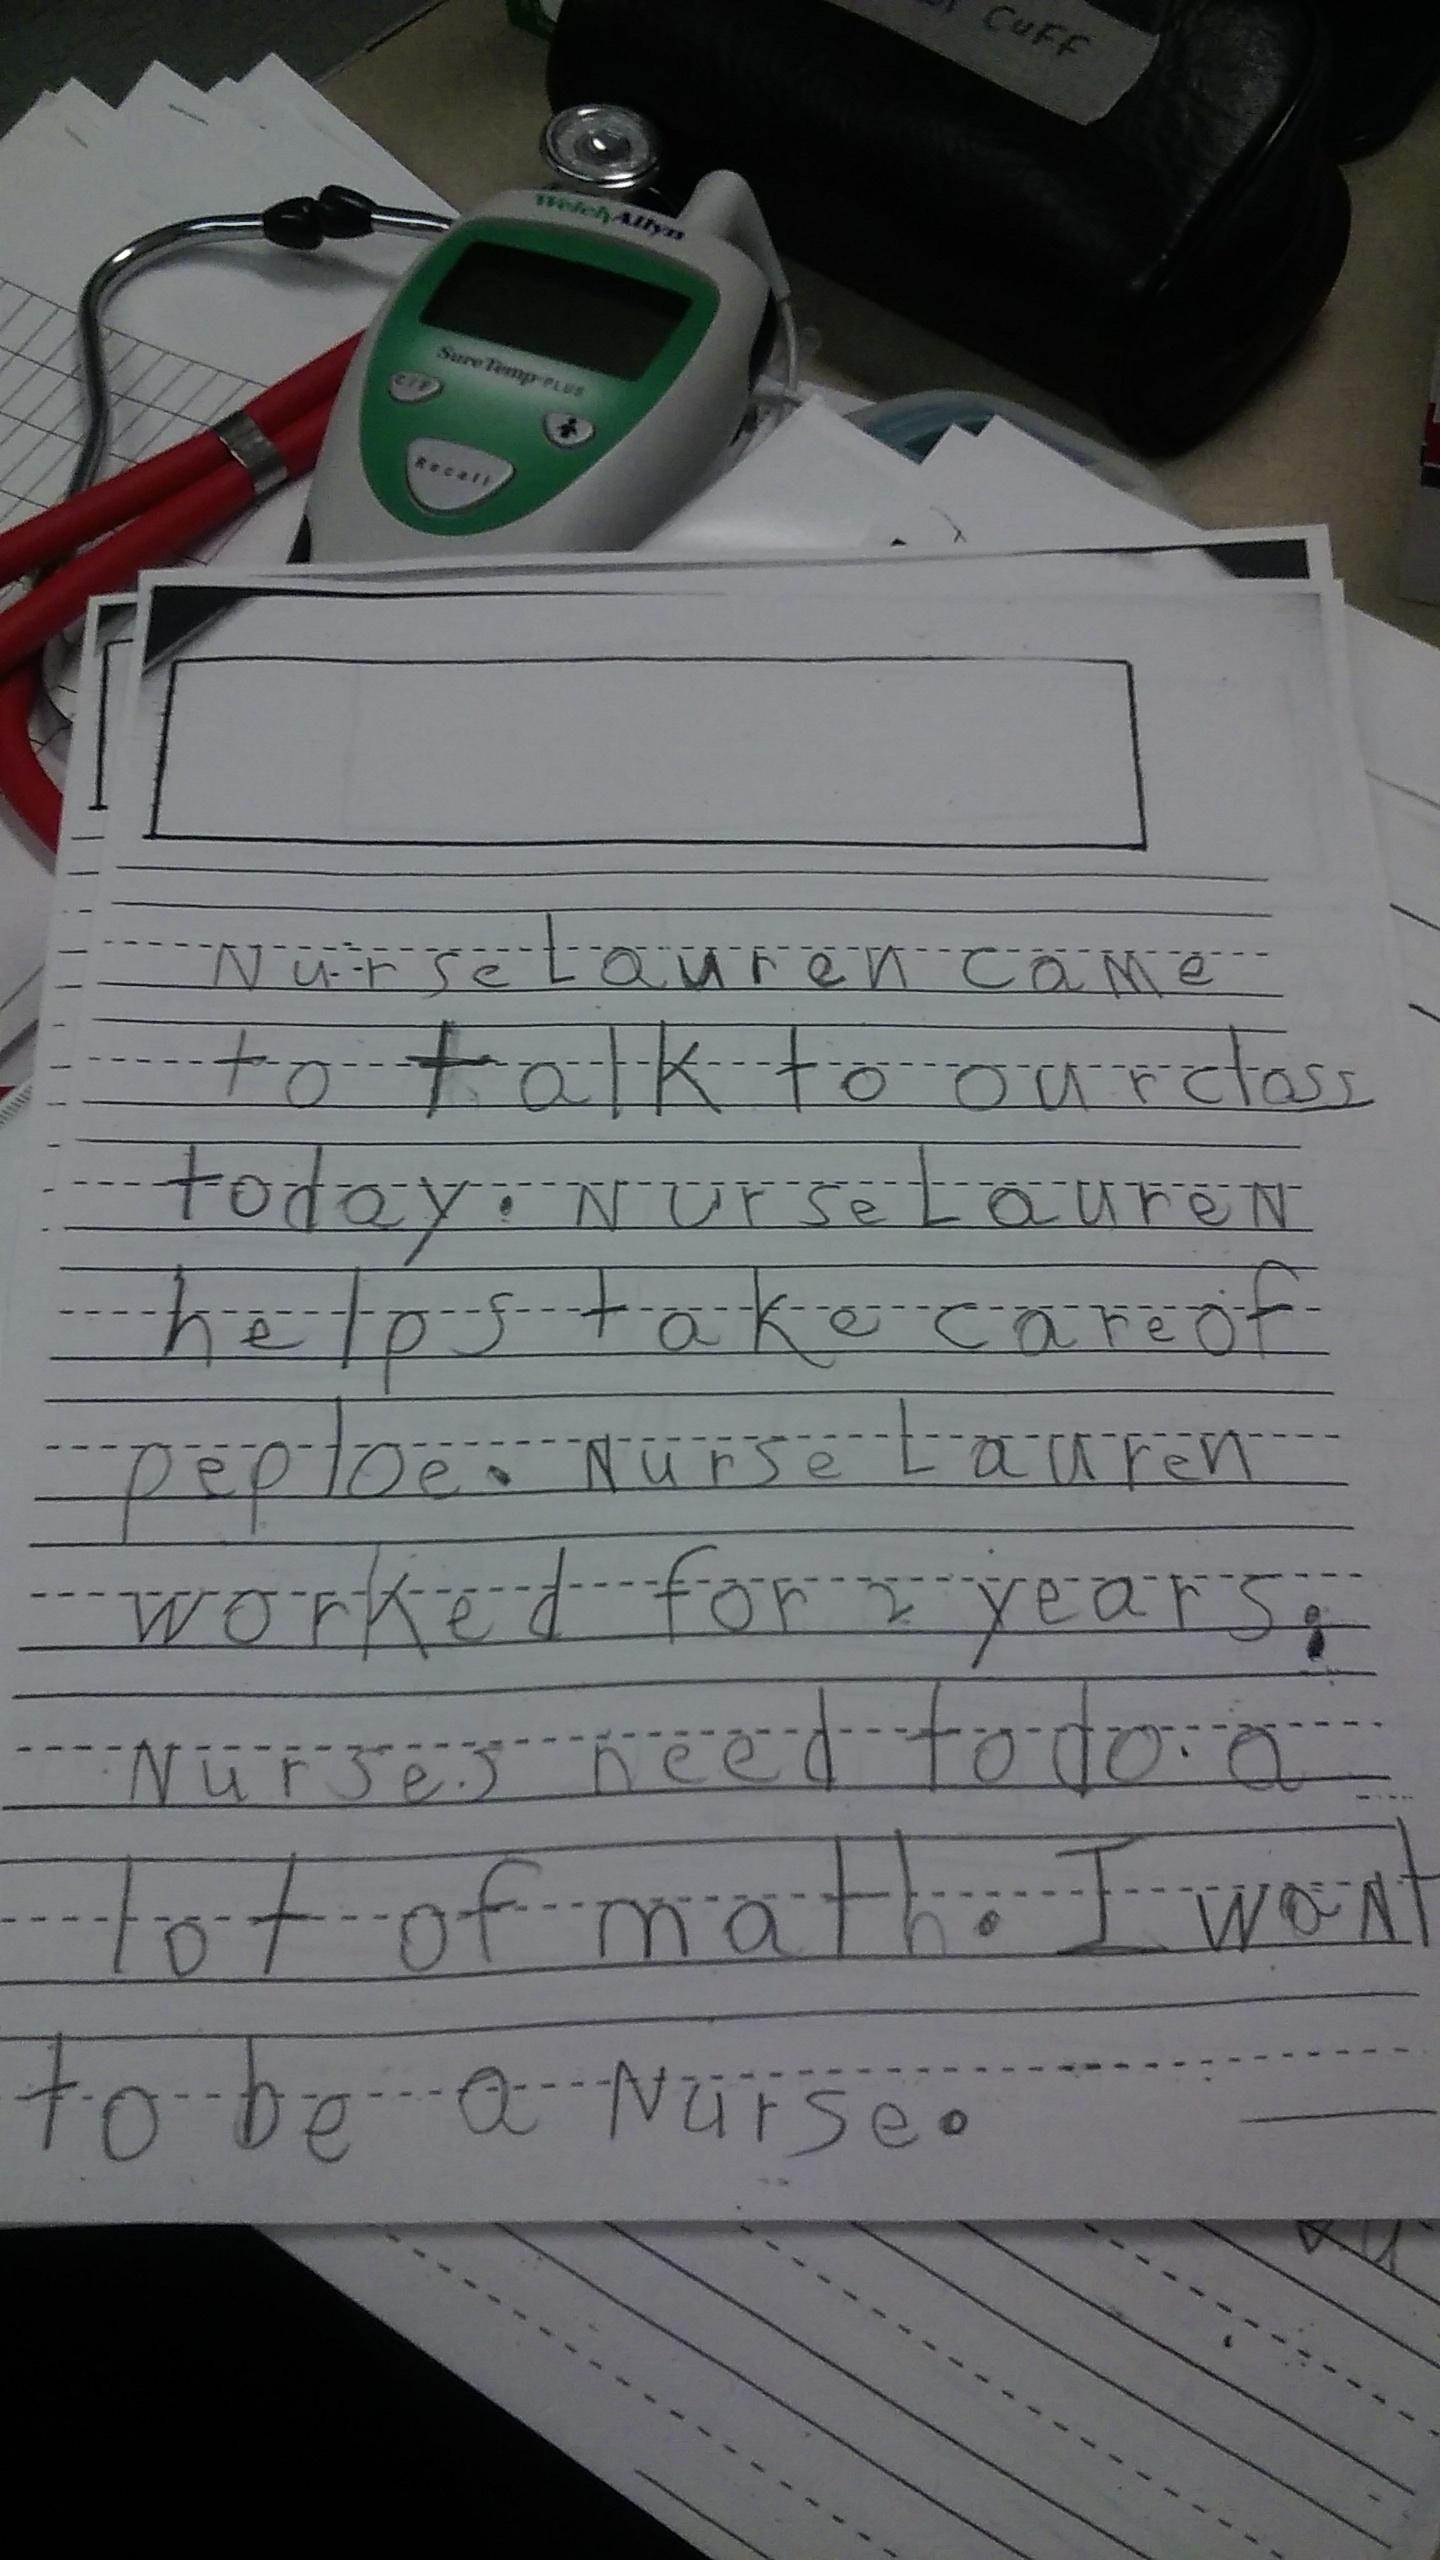 CUFF
WelchAllyn
SureTemp PLUS
C/F
Recall
Nurse Lauren came
to talk to our class
today. Nurse Lauren
helps take care of
peploe. Nurse Lauren
worked for 2 years.
Nurses need to do a
lot of math. I want
to be a Nurse.